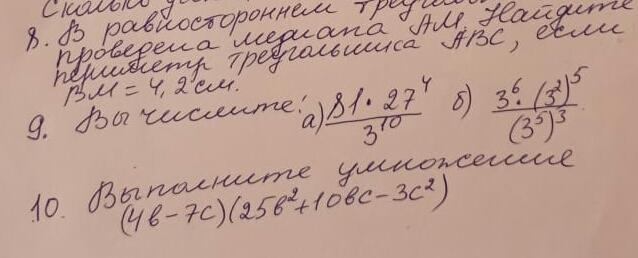 Сколько
8. В равностороннем
проведена медиана АМ. Найдите
периметр треугольника АВС, если
ВМ = 4,2 см.
9. Вычислите: а) 81 · 27⁴ / 3¹⁰ б) 3⁶ · (3²)⁵ / (3⁵)³
10. Выполните умножение
(4в-7с)(25в²+10вс-3с²)